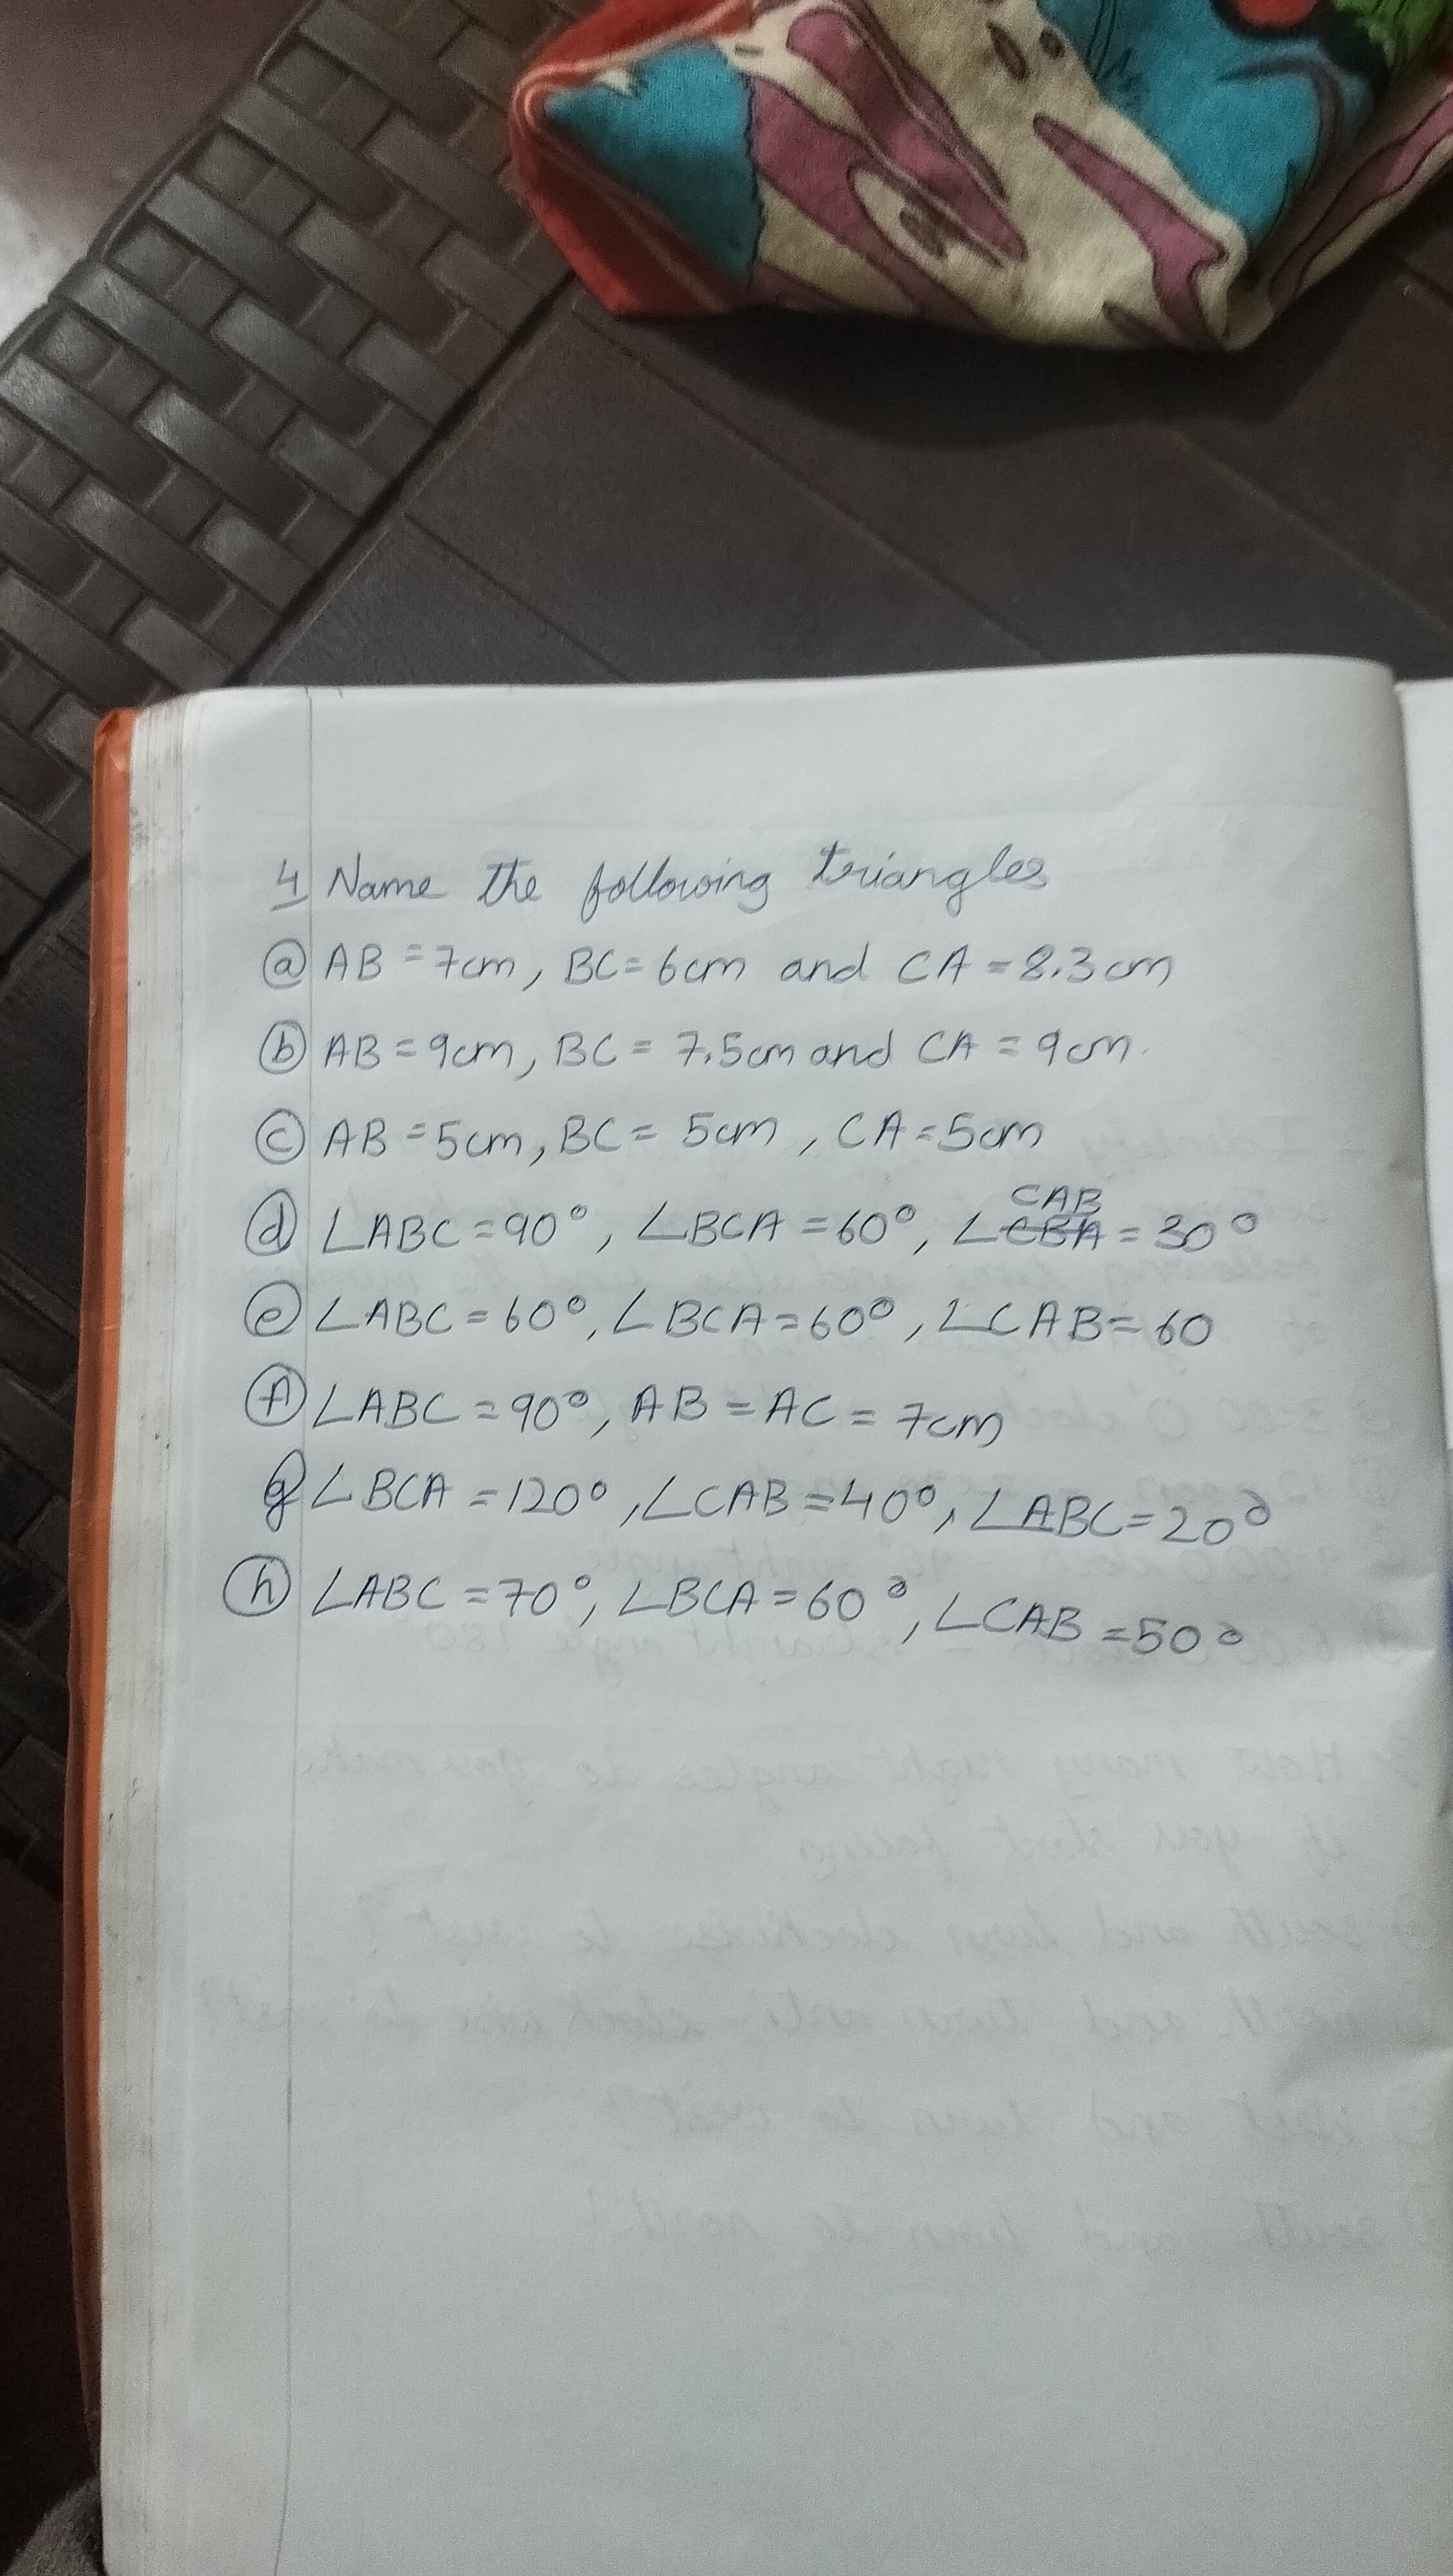 4 Name the following triangles
a AB = 7cm, BC = 6cm and CA = 8.3cm
b AB = 9cm, BC = 7.5cm and CA = 9cm.
c AB = 5cm, BC = 5cm, CA = 5cm
CAB
d ∠ABC = 90°, ∠BCA = 60°, ∠CBA = 30°
e ∠ABC = 60°, ∠BCA = 60°, ∠CAB = 60
f ∠ABC = 90°, AB = AC = 7cm
g ∠BCA = 120°, ∠CAB = 40°, ∠ABC = 20°
h ∠ABC = 70°, ∠BCA = 60°, ∠CAB = 50°